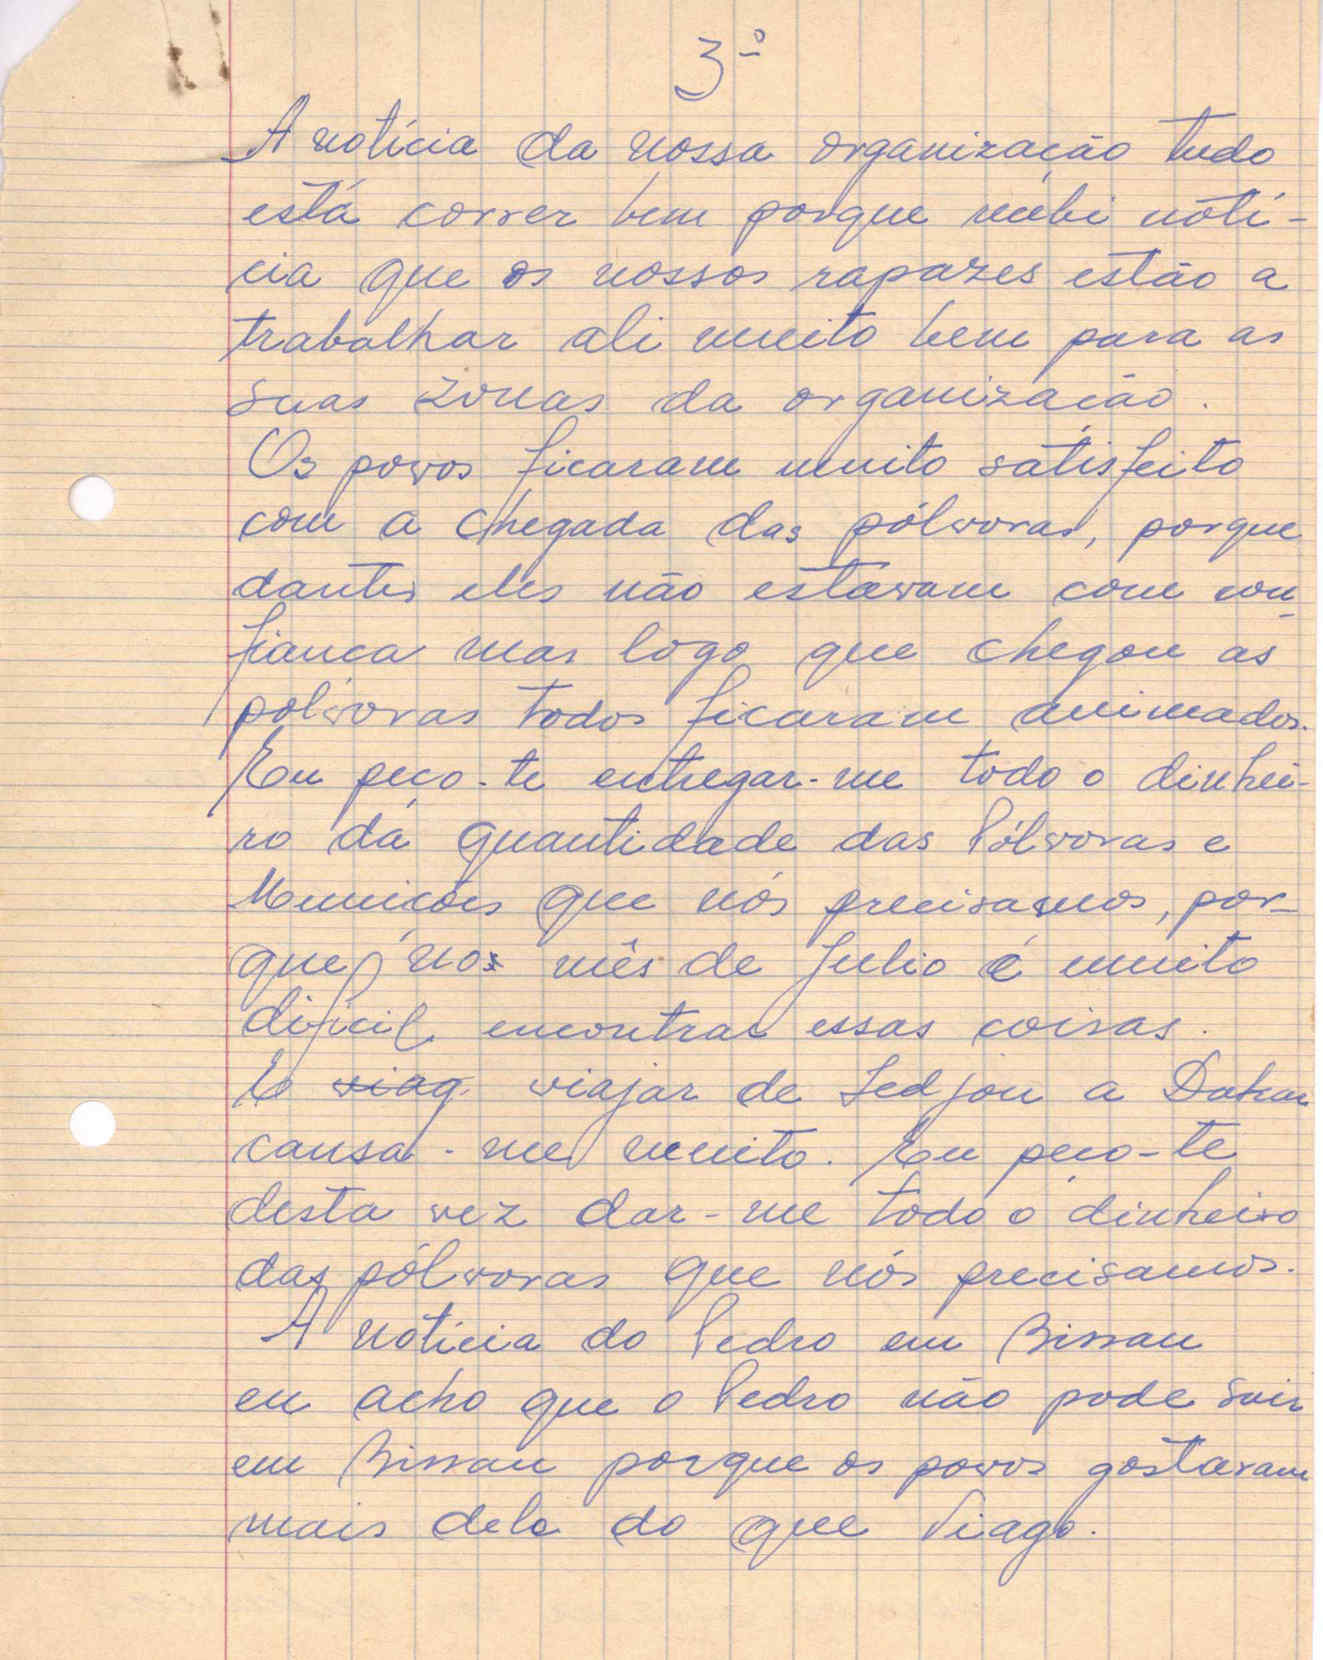 3º
A notícia da nossa organização tudo
está correr bem porque recebi notí-
cia que os nossos rapazes estão a
trabalhar ali muito bem para as
suas zonas da organização.
Os povos ficaram muito satisfeito
com a chegada das pólvoras, porque
dantes eles não estavam com con
fiança mas logo que chegou as
polvoras todos ficaram animados.
Eu peço-te entregar-me todo o dinhei-
ro da quantidade das Pólvoras e
Munições que nós precisamos, por-
que no mês de Julio é muito
dificil encontrar essas coisas.
E viag. viajar de Sedjou a Dakar
causa-me muito. Eu peço-te
desta vez dar-me todo o dinheiro
das pólvoras que nós precisamos.
A notícia do Pedro em Bissau
eu acho que o Pedro não pode sair
em Bissau porque os povos gostavam
mais dele do que